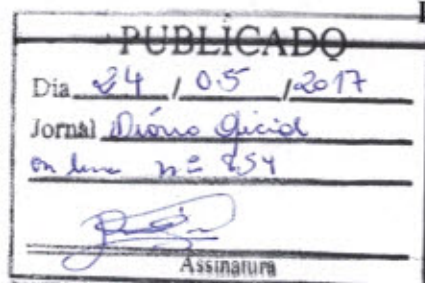 PUBLICADO
Dia 24 / 05 / 2017
Jornal Diário Oficial
on line nº 854
Assinatura